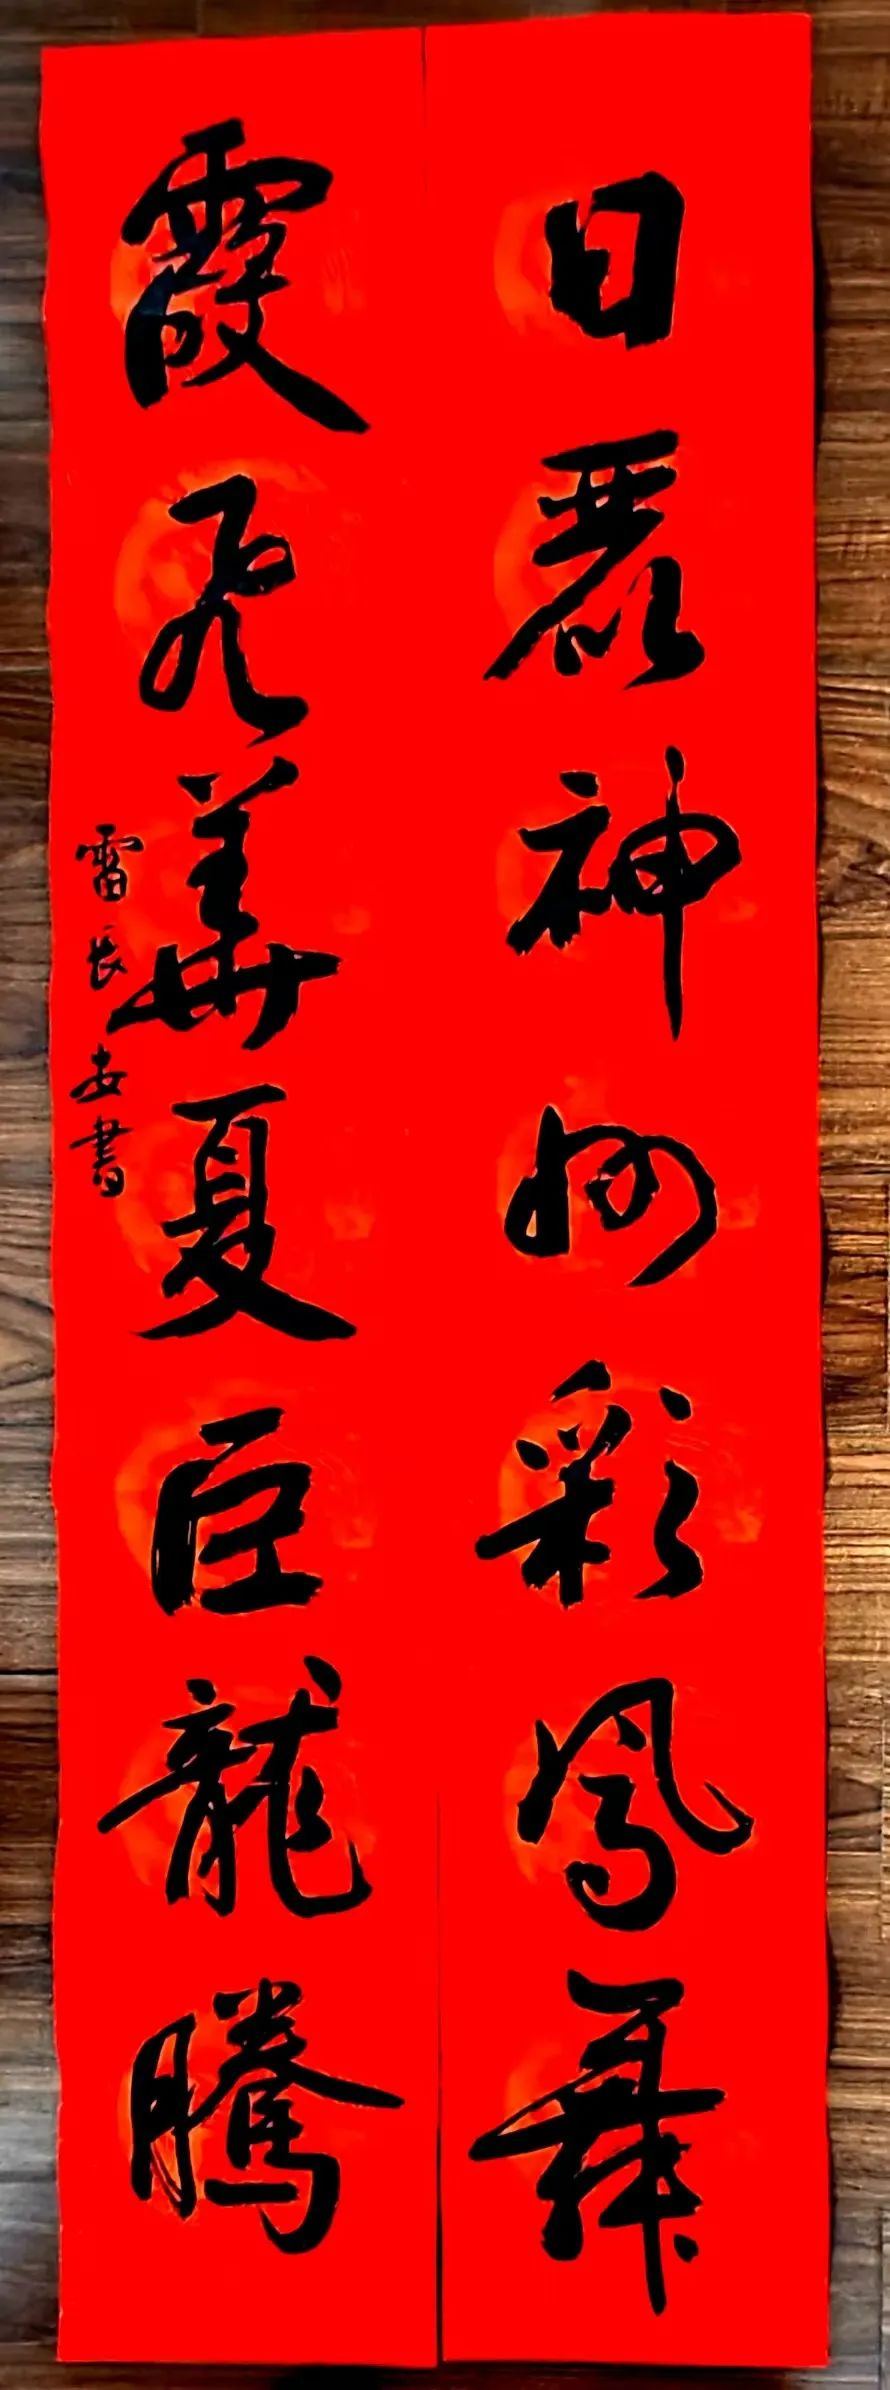 日麗神州彩鳳舞
霞飛華夏巨龍騰
雷長安書